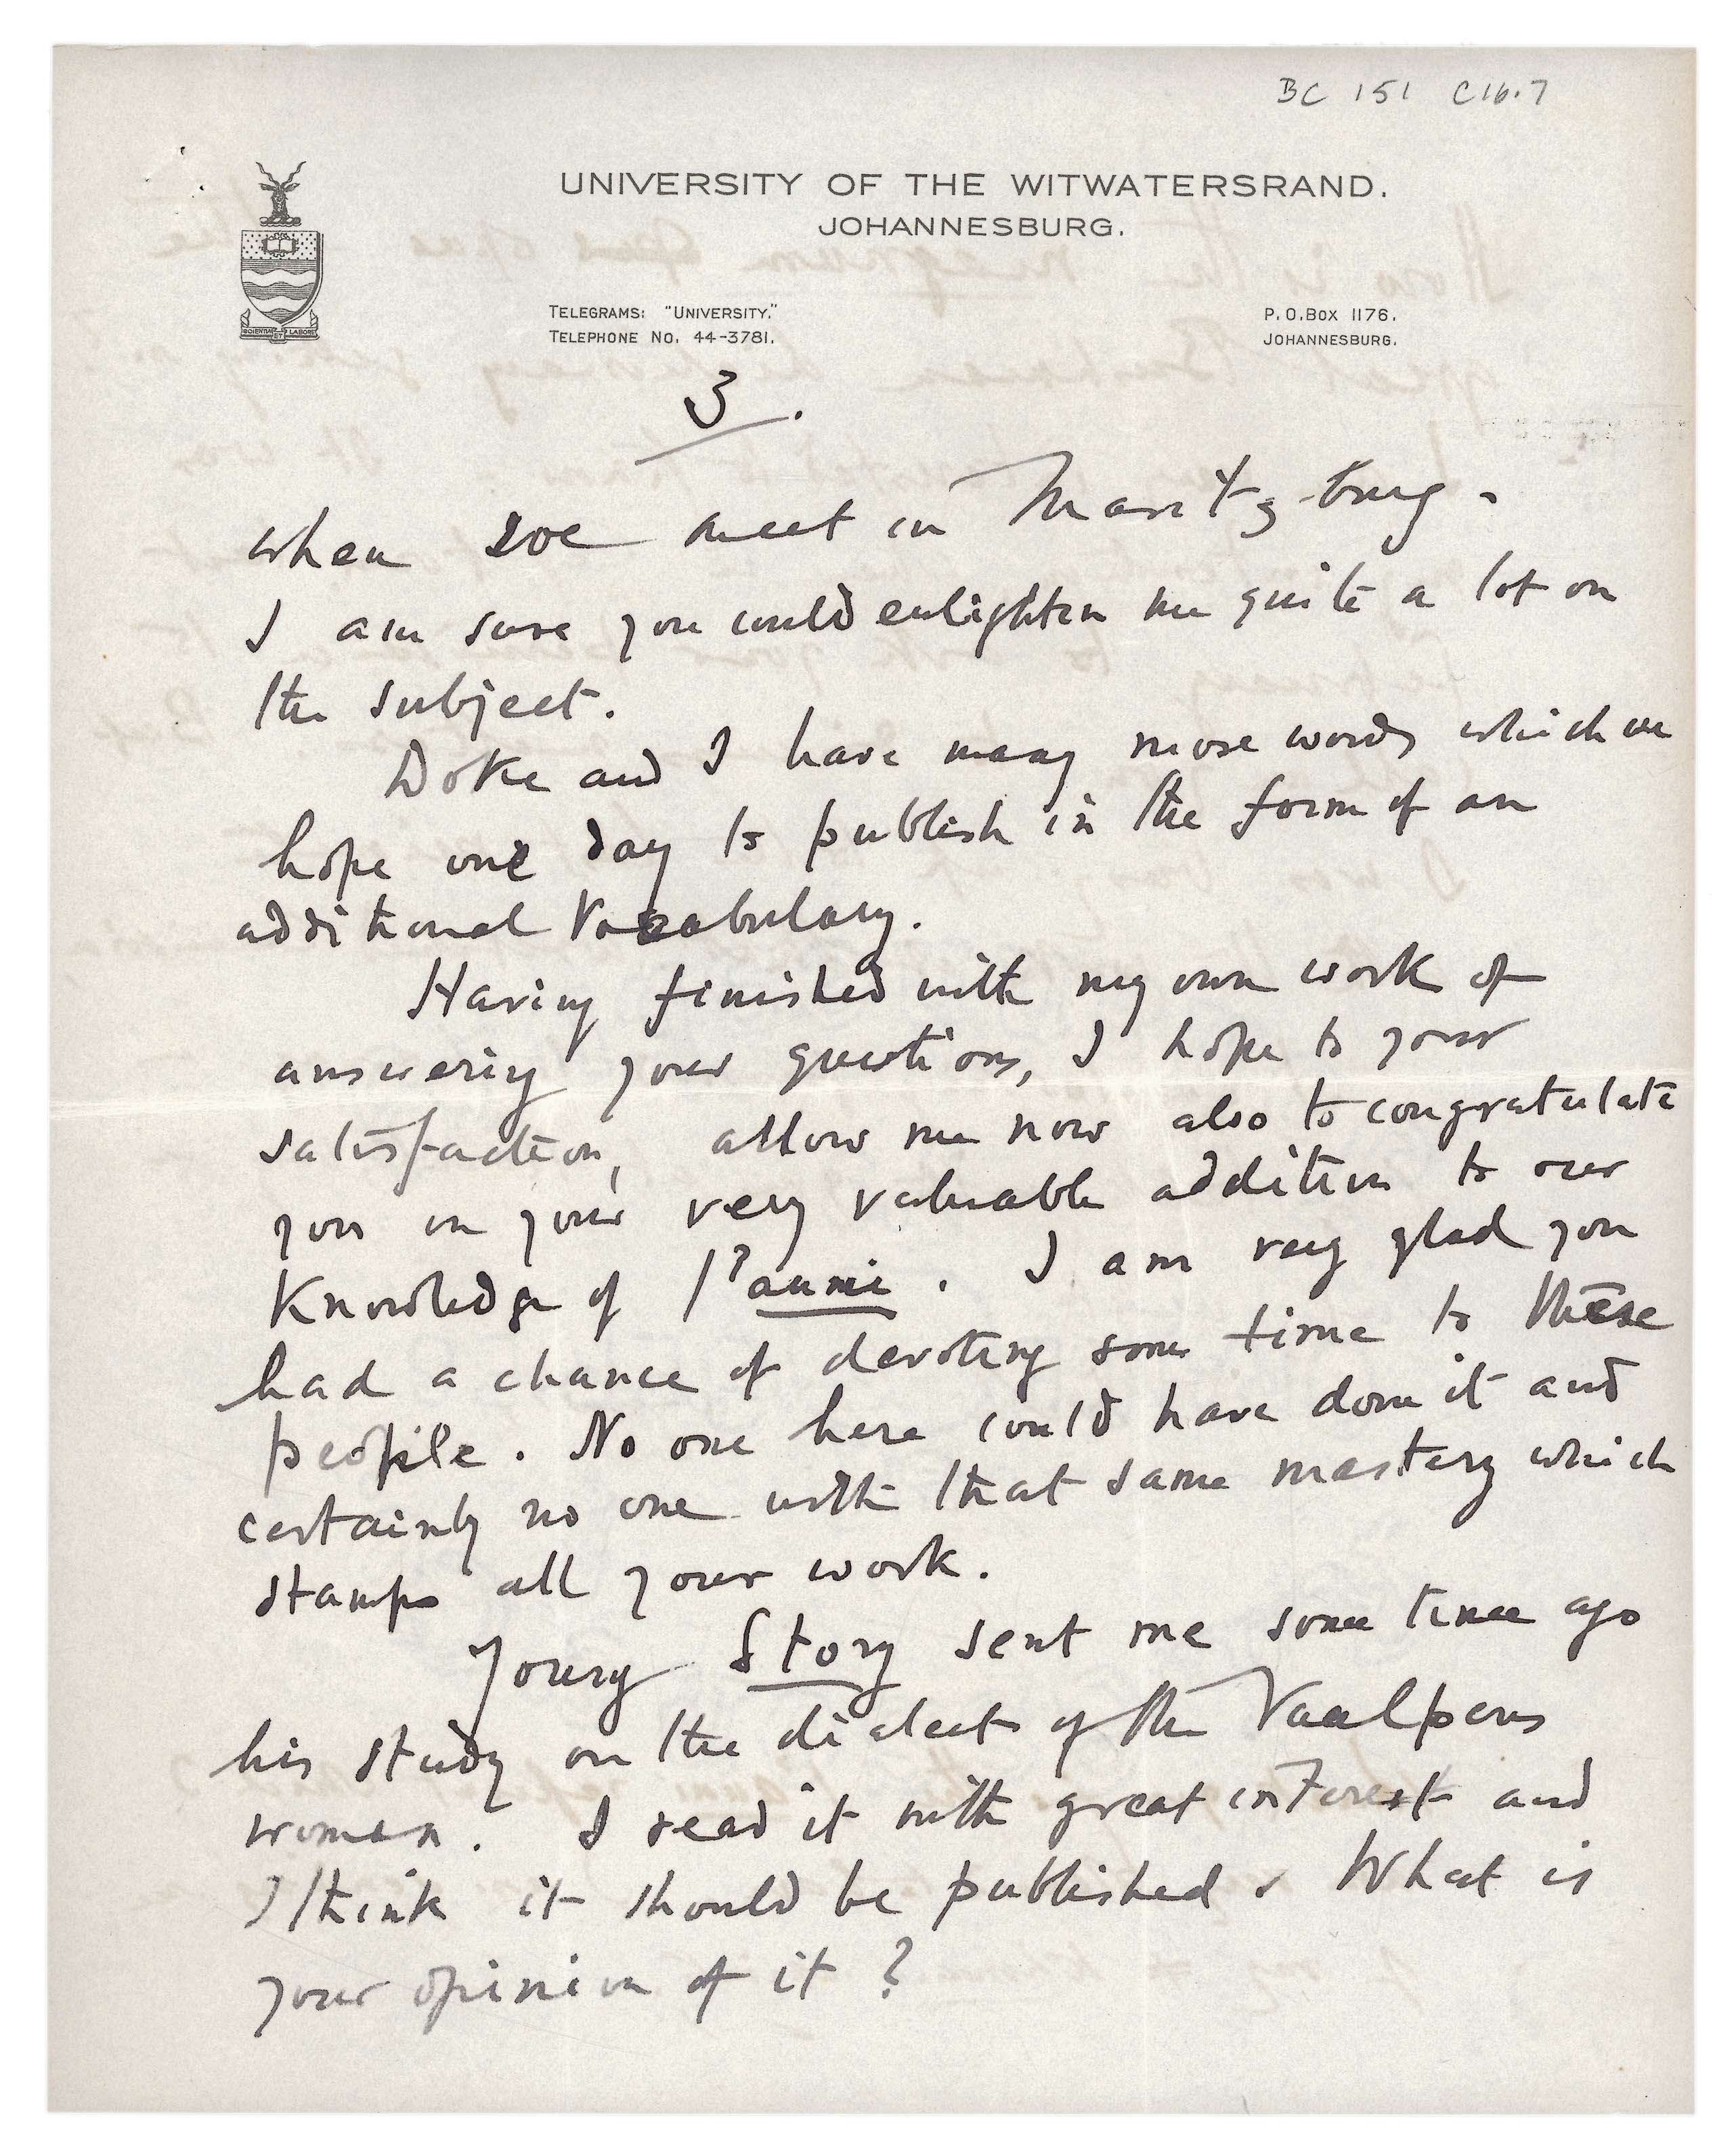 BC 151 C16.7
UNIVERSITY OF THE WITWATERSRAND.
JOHANNESBURG.
TELEGRAMS: "UNIVERSITY."
TELEPHONE NO. 44-3781.
P.O.BOX 1176.
JOHANNESBURG.
SCIENTIA ET LABORE
3.
when we meet in Maritz-burg.
I am sure you could enlighten me quite a lot on
the subject.
Doke and I have many more words which we
hope one day to publish in the form of an
additional Vocabulary.
Having finished with my own work of
answering your questions, I hope to your
satisfaction, allow me now also to congratulate
you on your very valuable addition to our
Knowledge of /ʔaunni. I am very glad you
had a chance of devoting some time to these
people. No one here could have done it and
certainly no one with that same mastery which
stamps all your work.
Young Story sent me some time ago
his study on the dialect of the Vaalpens
woman. I read it with great interest and
I think it should be published. What is
your opinion of it?